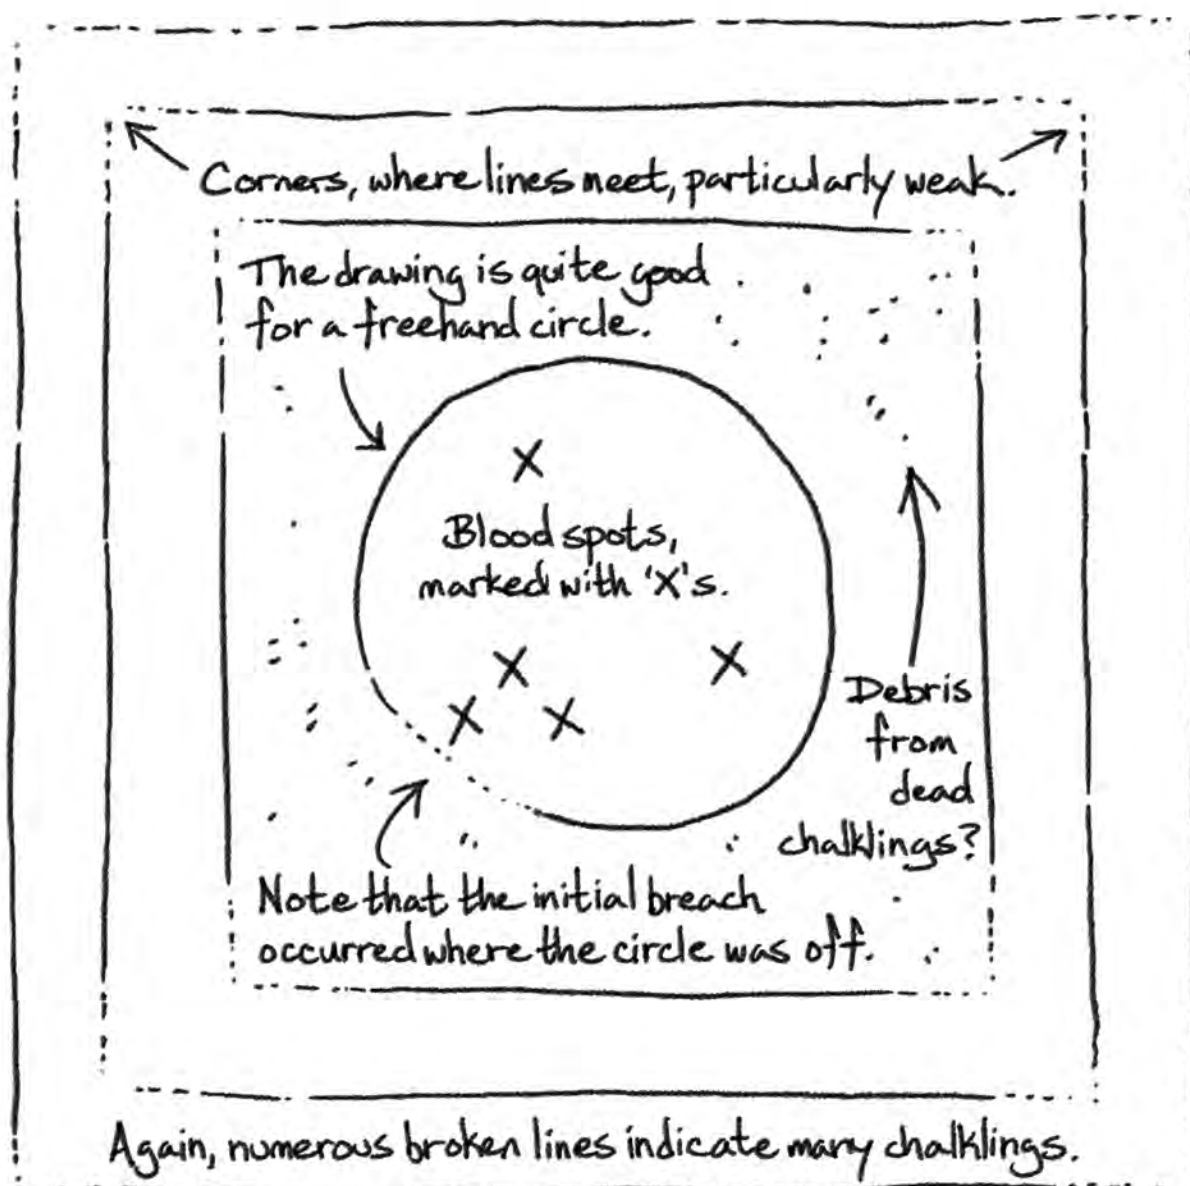 Corners, where lines meet, particularly weak.
The drawing is quite good
for a freehand circle.
Blood spots,
marked with 'X's.
Debris
from
dead
chalklings?
Note that the initial breach
occurred where the circle was off.
Again, numerous broken lines indicate many chalklings.